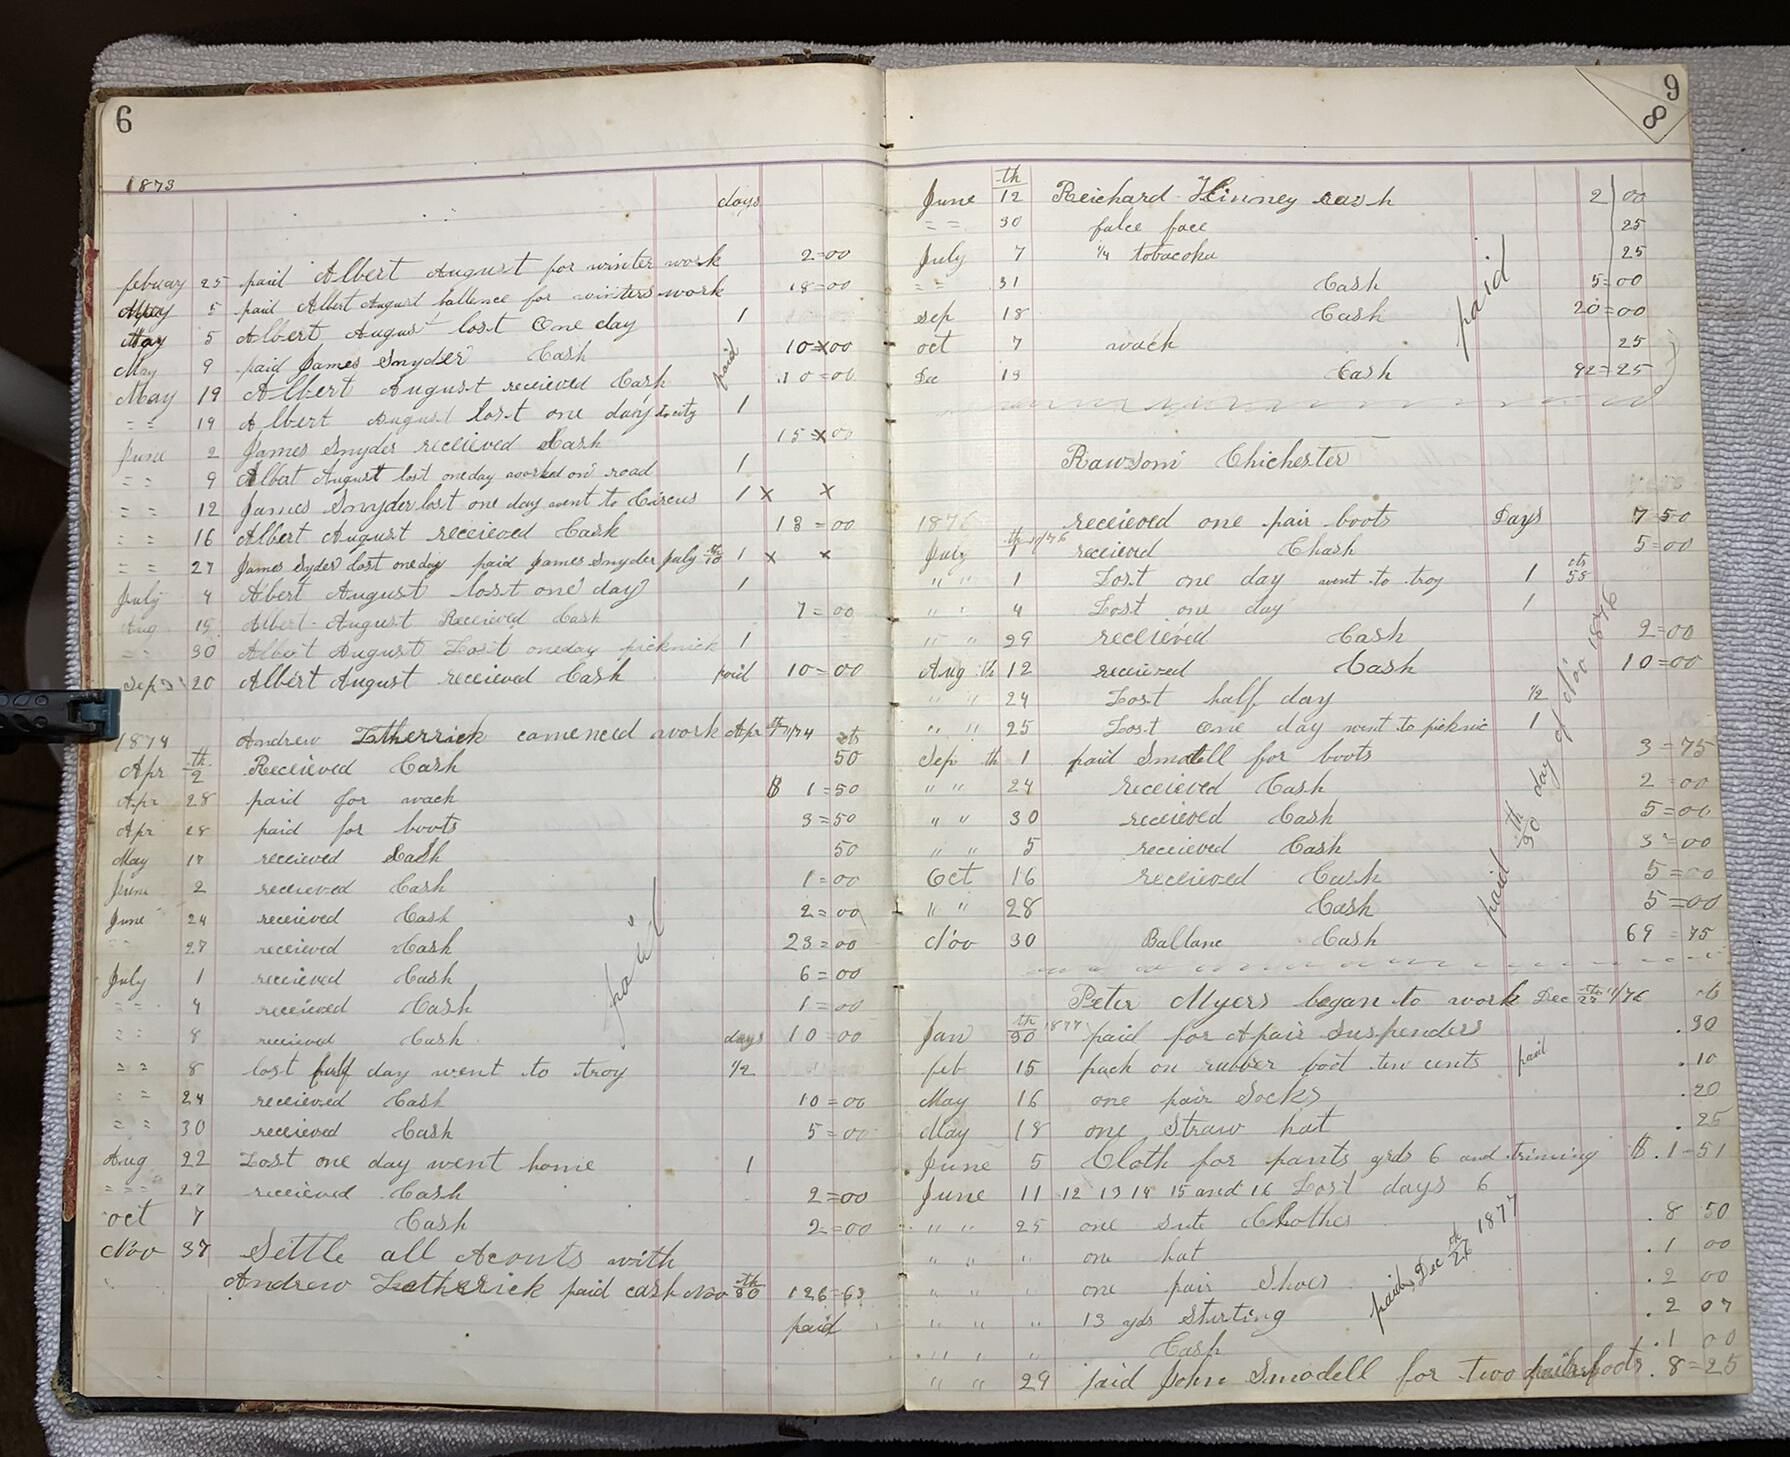 6
1873
days
febuary 25 paid Albert August for winter work 2=00
5 paid Albert August ballence for winters work 18=00
May 5 Albert August lost One day 1
May 9 paid James Snyder Cash 10=00
May 19 Albert August recieved Cash paid 10=00
" " 19 Albert August lost one day to city 1
June 2 James Snyder recieved Cash 15=00
" " 9 Albert August lost oneday worked on road 1
" " 12 James Snyder lost one day went to Circus 1 x x
" " 16 Albert August recieved Cash 18=00
" " 27 James Syder lost oneday paid James Snyder July th/10 1 x x
July 4 Albert August lost one day 1
Aug 15 Albert August Recieved Cash 7=00
" " 30 Albert August Lost oneday picknick 1
Sep 20 Albert August recieved Cash paid 10=00
1874 Andrew Letherrick comenced work Apr cts
Apr th/2 Recieved Cash 50
Apr 28 paid for wach $ 1=50
Apr 28 paid for boots 3=50
May 17 recieved Cash 50
June 2 recieved Cash 1=00
June 24 recieved Cash 2=00
" " 27 recieved Cash 23=00
July 1 recieved Cash 6=00
" " 4 recieved Cash 1=00
" " 8 recieved Cash days 10=00
" " 8 lost half day went to troy 1/2
" " 24 recieved Cash 10=00
" " 30 recieved Cash 5=00
paid
Aug 22 Lost one day went home 1
" " 27 recieved Cash 2=00
oct 7 Cash 2=00
Nov 37 Settle all Acounts with
Andrew Letherrick paid cash Nov th/30 126=63
paid
9
8
June th/12 Reichard Hinney cash 2 00
" " 30 falce face 25
July 7 1/4 tobacoha 25
" " 31 Cash 5=00
sep 18 Cash 20=00
oct 7 wach 25
Dec 13 Cash 92=25
paid
Rawsom Chichester
1876 recieved one pair boots Days 7 50
July recieved Chash 5=00
" " 1 Lost one day went to troy 1 cts 58
" " 4 Lost one day 1
" " 29 recieved Cash 2=00
Aug th 12 recieved Cash 10=00
" " 24 Lost half day 1/2
" " 25 Lost one day went to picknic 1
Sep th 1 paid Smodell for boots 3=75
" " 24 recieved Cash 2=00
" " 30 recieved Cash 5=00
" " 5 recieved Cash 3=00
Oct 16 recieved Cash 5=00
" " 28 Cash 5=00
Nov 30 Ballanc Cash 69=75
paid th/30 day of Nov 1876
Peter Myers began to work Dec th/27 /76 cts
Jan th/30 1877 paid for A pair Suspenders .30
feb 15 pach on rubber boot ten cents paid .10
May 16 one pair Socks .20
May 18 one Straw hat .25
June 5 Cloth for pants yrds 6 and triming $.1-51
June 11 12 13 14 15 and 16 Lost days 6
" " 25 one sute Clothes .8 50
" " " one hat .1 00
" " " one pair Shoes .2 00
" " " 13 yds Sturting .2 07
" " " Cash .1 00
paid Dec th/26 1877
" " 29 paid John Smodell for two boots .8=25